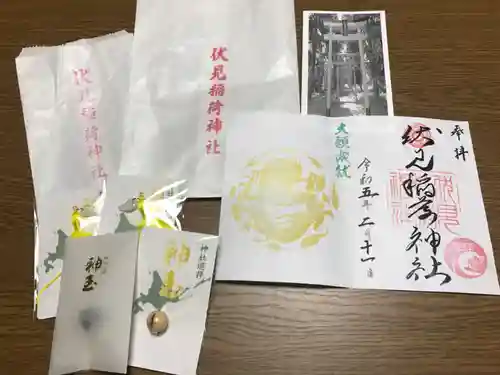 伏見稲荷神社
伏見稲荷神社
奉拝
伏見稲荷神社
令和五年二月十一日
大願成就
神社巡拝
神玉